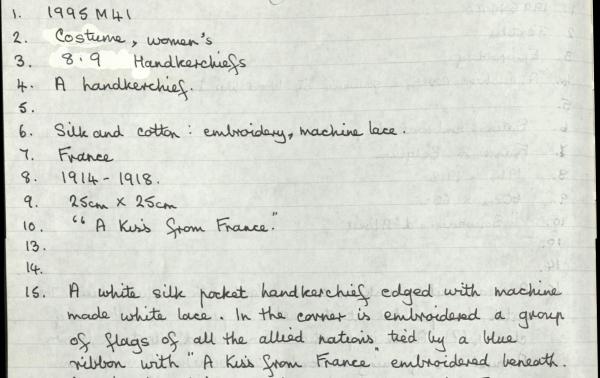 1. 1995 M41
2. Costume, women's
3. 8.9 Handkerchiefs
4. A handkerchief.
5.
6. Silk and cotton : embroidery, machine lace.
7. France
8. 1914 - 1918.
9. 25cm x 25cm
10. "A Kiss from France."
13.
14.
15. A white silk pocket handkerchief edged with machine
made white lace. In the corner is embroidered a group
of flags of all the allied nations tied by a blue
ribbon with "A Kiss from France" embroidered beneath.